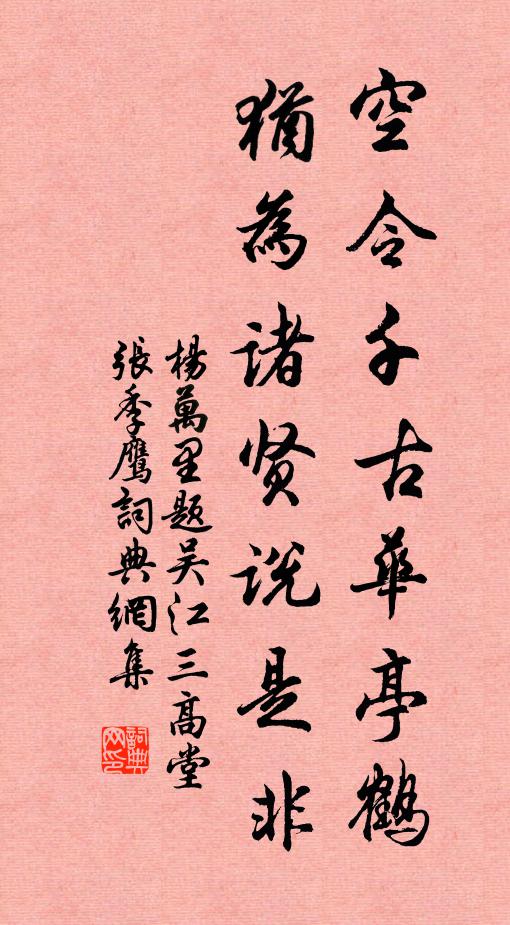 空令千古華亭鶴
猶為諸贤説是非
楊萬里题吴江三高堂
張季鷹詞典網集
詞典网印